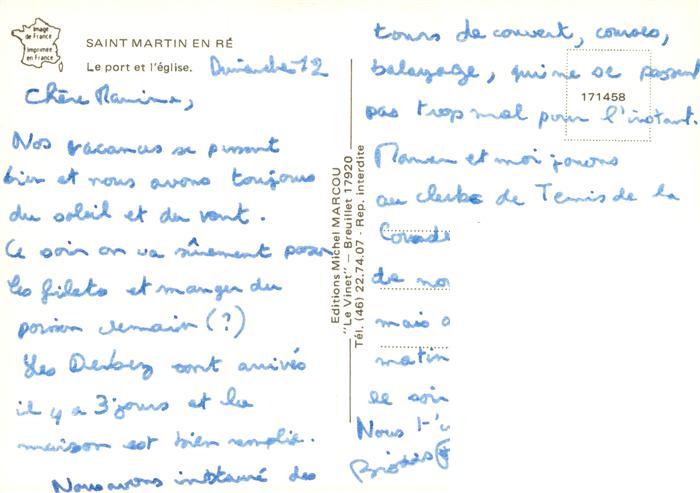 Image
de France
Imprimée
en France
SAINT MARTIN EN RÉ
Le port et l'église.
Dimanche 12
Chère Mamine,
Nos vacances se passent
bien et nous avons toujours
du soleil et du vent.
Ce soir on va sûrement poser
les filets et manger du
poisson demain (?)
Les Derbez sont arrivés
il y a 3 jours et la
maison est bien remplie.
Nous avons instauré des
Editions Michel MARCOU
"Le Vinet" – Breuillet 17920
Tél. (46) 22.74.07 - Rep. interdite
tours de couvert, courses,
balayage, qui ne se passent
pas trop mal pour l'instant.
171458
Maman et moi jouons
au club de Tennis de la
de
mais
matin
ce soir
Nous t'